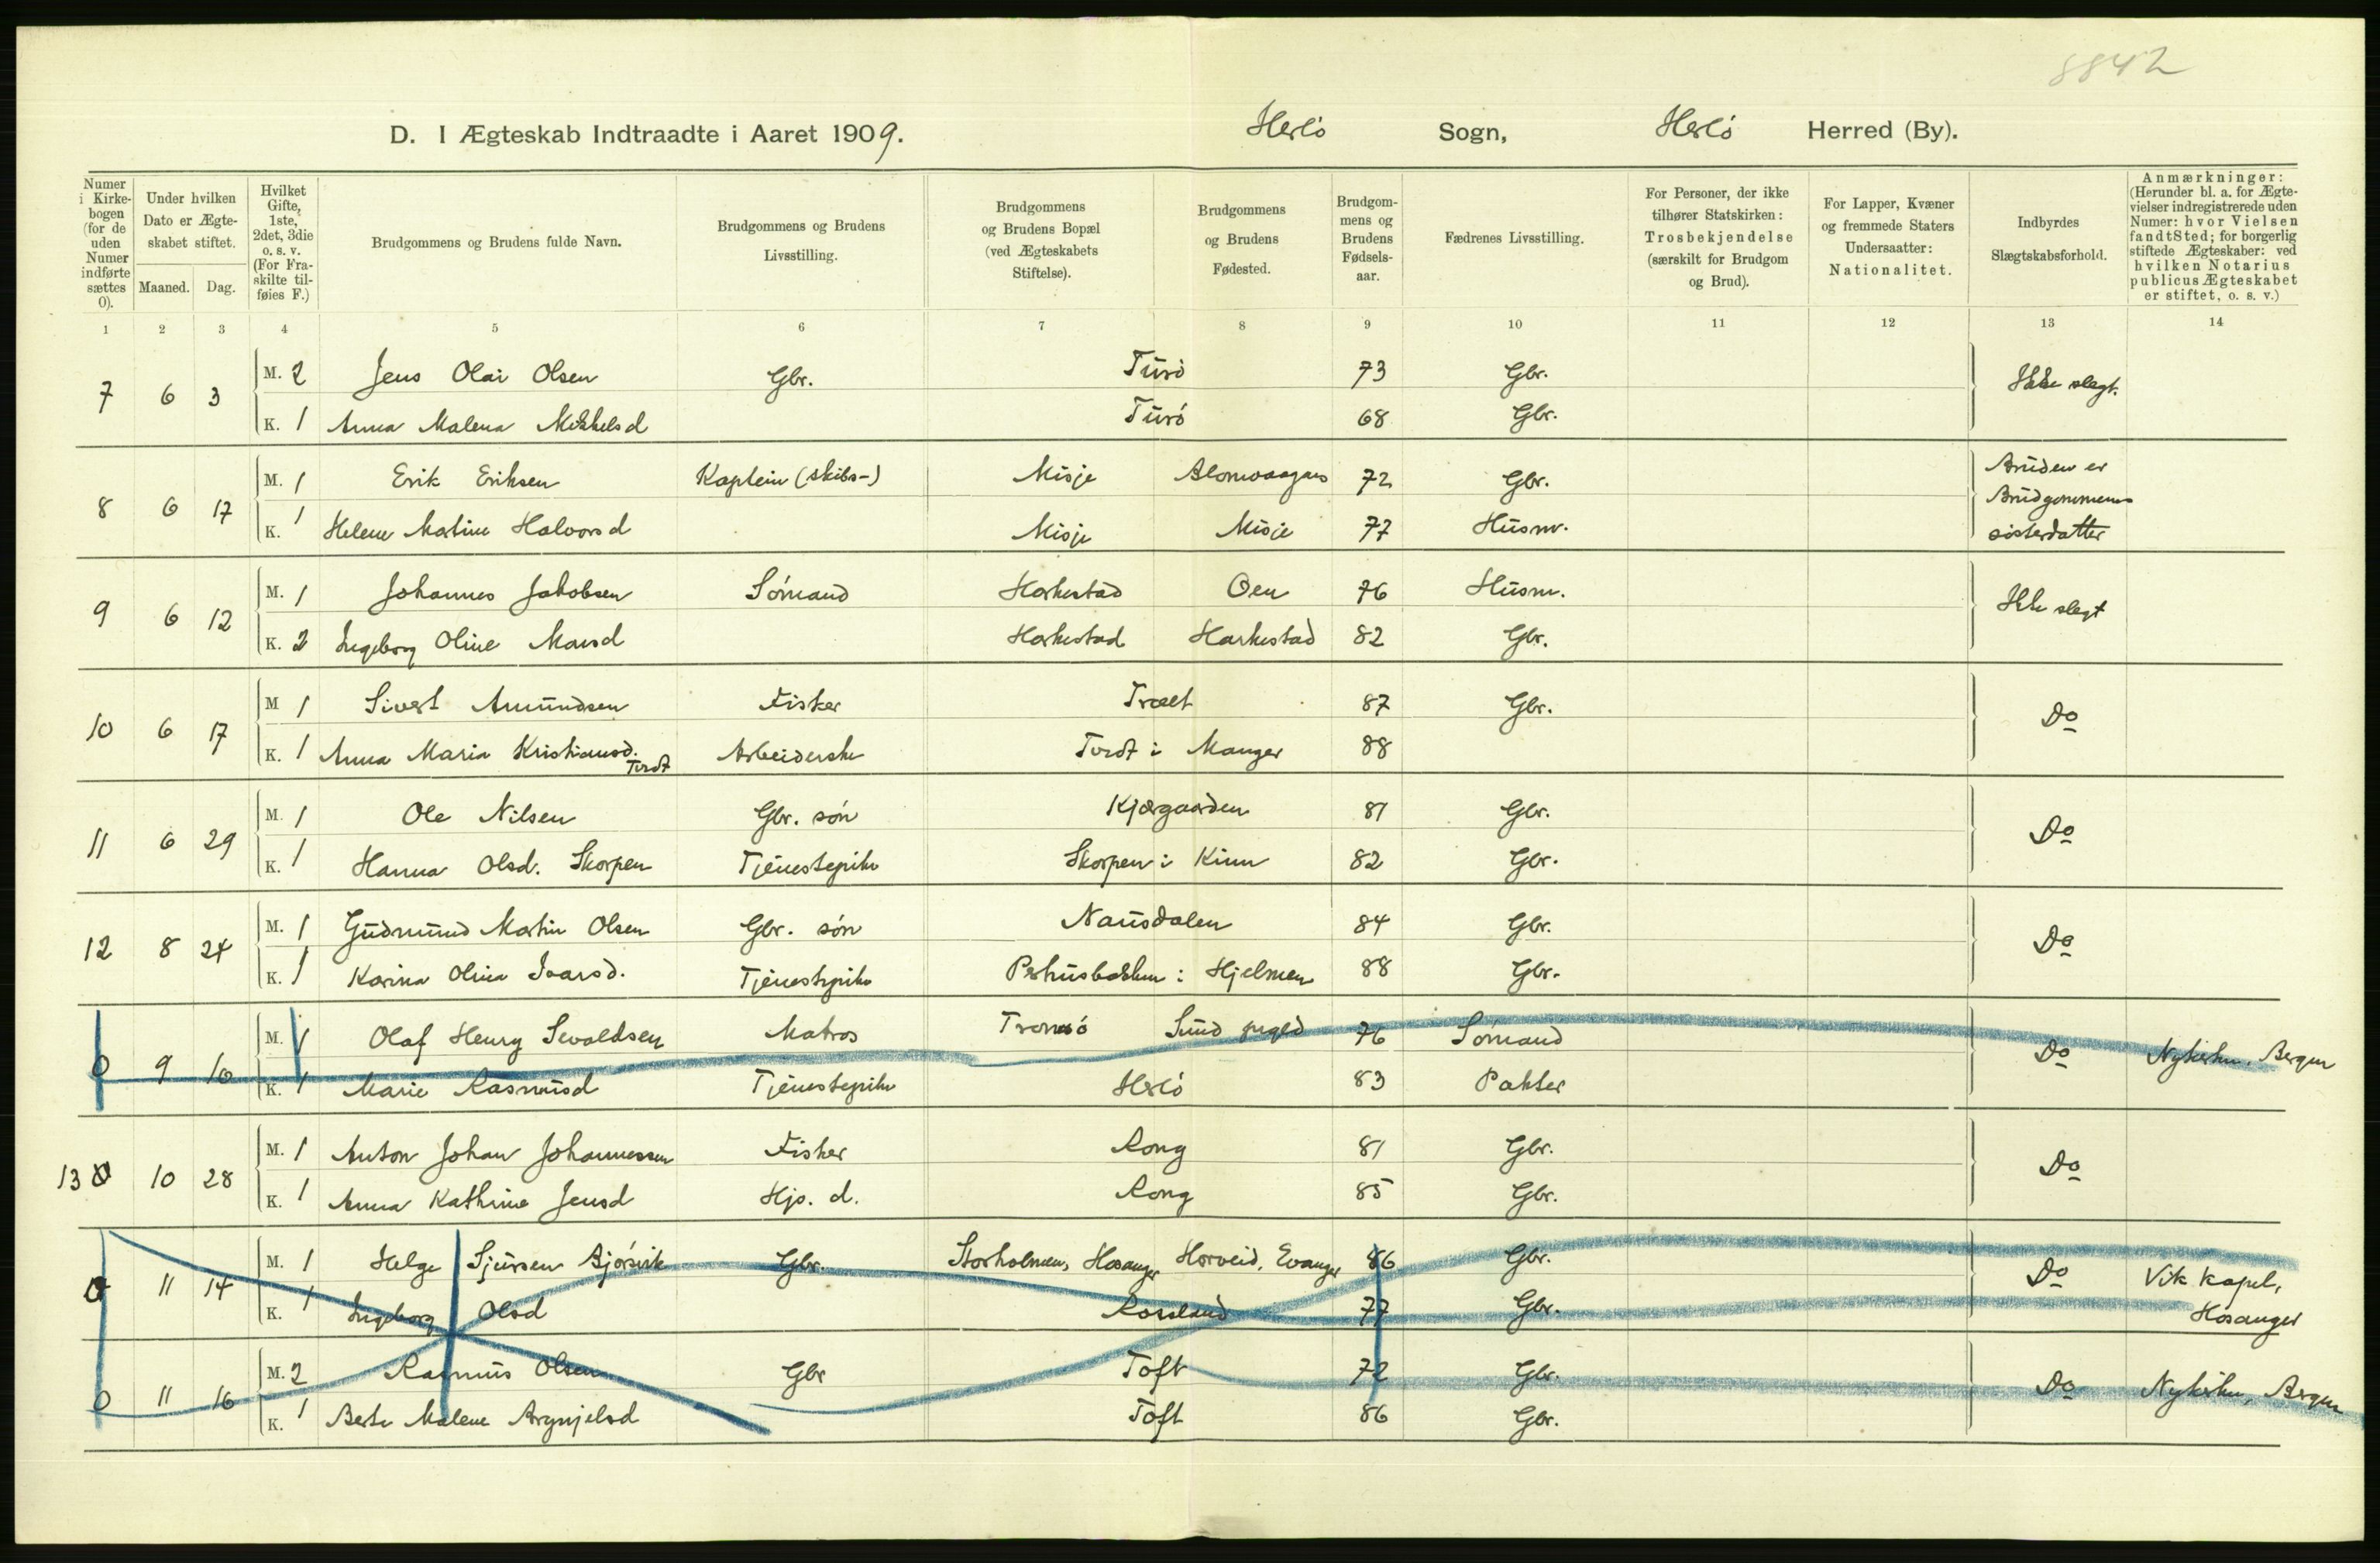 8842
D. I Ægteskab Indtraadte i Aaret 1909. Herlö Sogn, Herlö Herred (By).
Numer i Kirkebogen (for de uden Numer indførte sættes 0).
Under hvilken Dato er Ægteskabet stiftet.
Maaned. Dag.
Hvilket Gifte, 1ste, 2det, 3die o. s. v. (For Fraskilte tilføies F.)
Brudgommens og Brudens fulde Navn.
Brudgommens og Brudens Livsstilling.
Brudgommens og Brudens Bopæl (ved Ægteskabets Stiftelse).
Brudgommens og Brudens Fødested.
Brudgommens og Brudens Fødselsaar.
Fædrenes Livsstilling.
For Personer, der ikke tilhører Statskirken: Trosbekjendelse (særskilt for Brudgom og Brud).
For Lapper, Kvæner og fremmede Staters Undersaatter: Nationalitet.
Indbyrdes Slægtskabsforhold.
Anmærkninger: (Herunder bl. a. for Ægtevielser indregistrerede uden Numer: hvor Vielsen fandt Sted; for borgerlig stiftede Ægteskaber: ved hvilken Notarius publicus Ægteskabet er stiftet, o. s. v.)
1 2 3 4 5 6 7 8 9 10 11 12 13 14
7 6 3 M. 2 Jens Olai Olsen Gbr. Turö 73 Gbr. Ikke slegt.
K. 1 Anna Malena Mikkelsd Turö 68 Gbr.
8 6 17 M. 1 Erik Eriksen Kaptein (skibs-) Misje Blomvaagnes 72 Gbr. Bruden er Brudgommens sösterdatter
K. 1 Helene Martine Halvorsd Misje Misje 77 Husm.
9 6 12 M. 1 Johannes Jakobsen Sömand Harkestad Oen 76 Husm. Ikke slegt
K. 2 Ingeborg Oline Monsd Harkestad Harkestad 82 Gbr.
10 6 17 M 1 Sivert Amundsen Fisker Trælt 87 Gbr. Do
K. 1 Anna Maria Kristiansd. Tordt Arbeiderske Tordt i Manger 88
11 6 29 M. 1 Ole Nilsen Gbr. sön Kjærgaarden 81 Gbr. Do
K. 1 Hanna Olsd. Skorpen Tjenestepike Skorpen i Kinn 82 Gbr.
12 8 24 M. 1 Gudmund Martin Olsen Gbr. sön Nausdalen 84 Gbr. Do
K. 1 Karina Olina Ivarsd. Tjenestepike Perhusbakken i Hjelmen 88 Gbr.
0 9 10 M. 1 Olaf Henry Sevaldsen Matros Tromsö Sund prgld 76 Sömand Do Nykirken. Bergen
K. 1 Marie Rasmusd Tjenestepike Herlö 83 Pakter
13 0 10 28 M. 1 Anton Johan Johannessen Fisker Rong 81 Gbr. Do
K. 1 Anna Kathrine Jensd Hjs. d. Rong 85 Gbr.
0 11 14 M. 1 Helge Sjursen Bjørsvik Gbr. Storholmen, Hosanger Horveid, Evanger 86 Gbr. Do Vik kapel, Hosanger
K. 1 Ingeborg Olsd Rossland 77 Gbr.
0 11 16 M. 2 Rasmus Olsen Gbr Toft 72 Gbr. Do Nykirken, Bergen
K. 1 Berte Malene Brynjelsd Toft 86 Gbr.